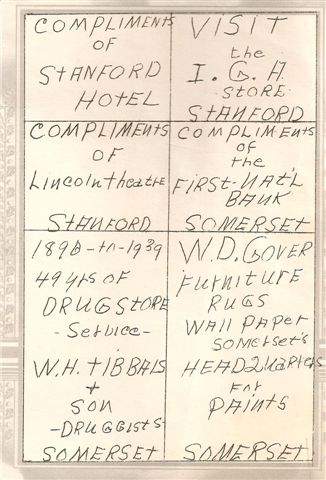 COMPLIMENTS
OF
STANFORD
HOTEL
VISIT
the
I. G. A.
STORE
STANFORD
COMPLIMENTS
OF
Lincoln theatre
STANFORD
COMPLIMENTS
of
the
FIRST-NAT'L
BANK
SOMERSET
1890-to-1939
49 yrs OF
DRUG STORE
-Service-
W.H. TIBBALS
+
SON
-DRUGGISTS-
SOMERSET
W.D. GOVER
FURNITURE
RUGS
Wall PaPer
SOMERSET'S
HEADQUARTERS
For
PAINTS
SOMERSET